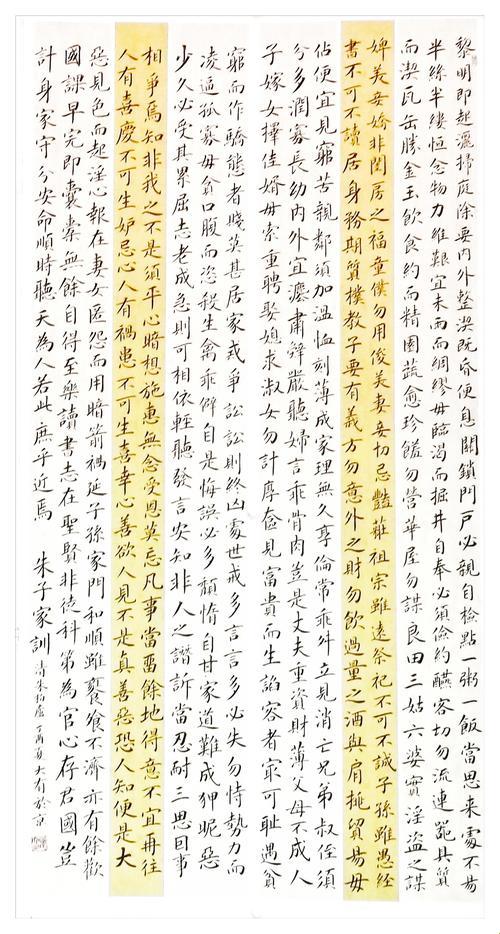 黎明即起灑掃庭除要內外整潔既昏便息關鎖門戶必親自檢點一粥一飯當思來處不易
半絲半縷恒念物力維艱宜未雨而綢繆毋臨渴而掘井自奉必須儉約醼客切勿流連器具質
而潔瓦缶勝金玉飲食約而精園蔬愈珍饈勿營華屋勿謀良田三姑六婆實淫盜之謀
婢美妾嬌非閨房之福童僕勿用俊美妻妾切忌豔莊祖宗雖遠祭祀不可不誠子孫雖愚經
書不可不讀居身務期質樸教子要有義方勿意外之財勿飲過量之酒與肩挑貿易毋
佔便宜見窮苦親鄰須加溫恤刻薄成家理無久享倫常乖舛立見消亡兄弟叔侄須
分多潤寡長幼內外宜灋肅辭嚴聽婦言乖骨肉豈是丈夫重資財薄父母不成人
子嫁女擇佳婿毋索重聘娶媳求淑女勿計厚奩見富貴而生諂容者最可恥遇貧
窮而作驕態者賤莫甚居家戒爭訟訟則終凶處世戒多言言多必失勿恃勢力而
凌逼孤寡毋貪口腹而恣殺生禽乖僻自是悔誤必多頹惰自甘家道難成狎昵惡
少久必受其累屈志老成急則可相依輕聽發言安知非人之譖訴當忍耐三思因事
相爭焉知非我之不是須平心暗想施惠無念受恩莫忘凡事當留餘地得意不宜再往
人有喜慶不可生妒忌心人有禍患不可生喜幸心善欲人見不是真善惡恐人知便是大
惡見色而起淫心報在妻女匿怨而用暗箭禍延子孫家門和順雖饔飧不濟亦有餘歡
國課早完即囊橐無餘自得至樂讀書志在聖賢非徒科第為官心存君國豈
計身家守分安命順時聽天為人若此庶乎近焉 朱子家訓 清朱柏廬 大有於京